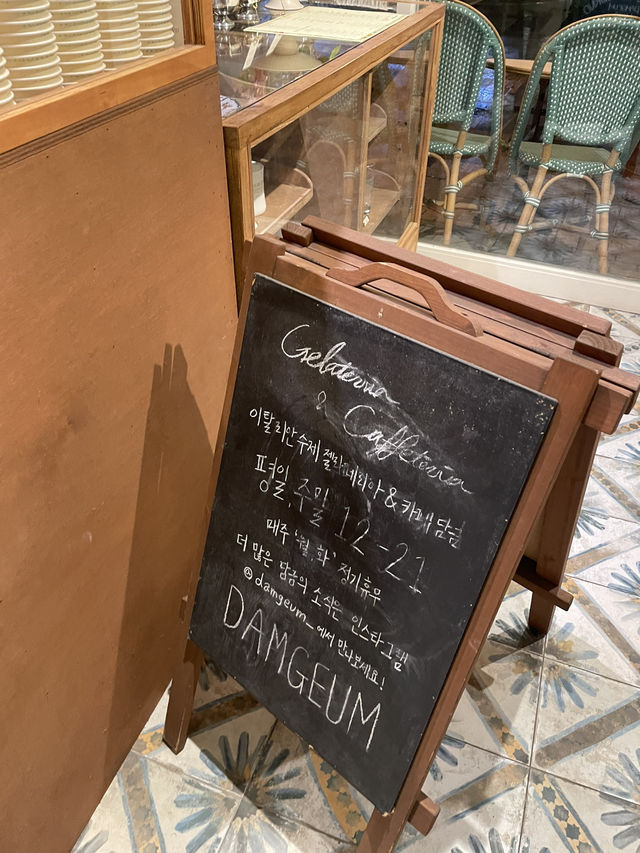 Gelateria
& Caffeteria
이탈리안 수제 젤라떼리아 & 카페 담금
평일, 주말 12-21
매주 '월, 화' 정기휴무
더 많은 담금의 소식은 인스타그램
@damgeum_에서 만나보세요!
DAMGEUM